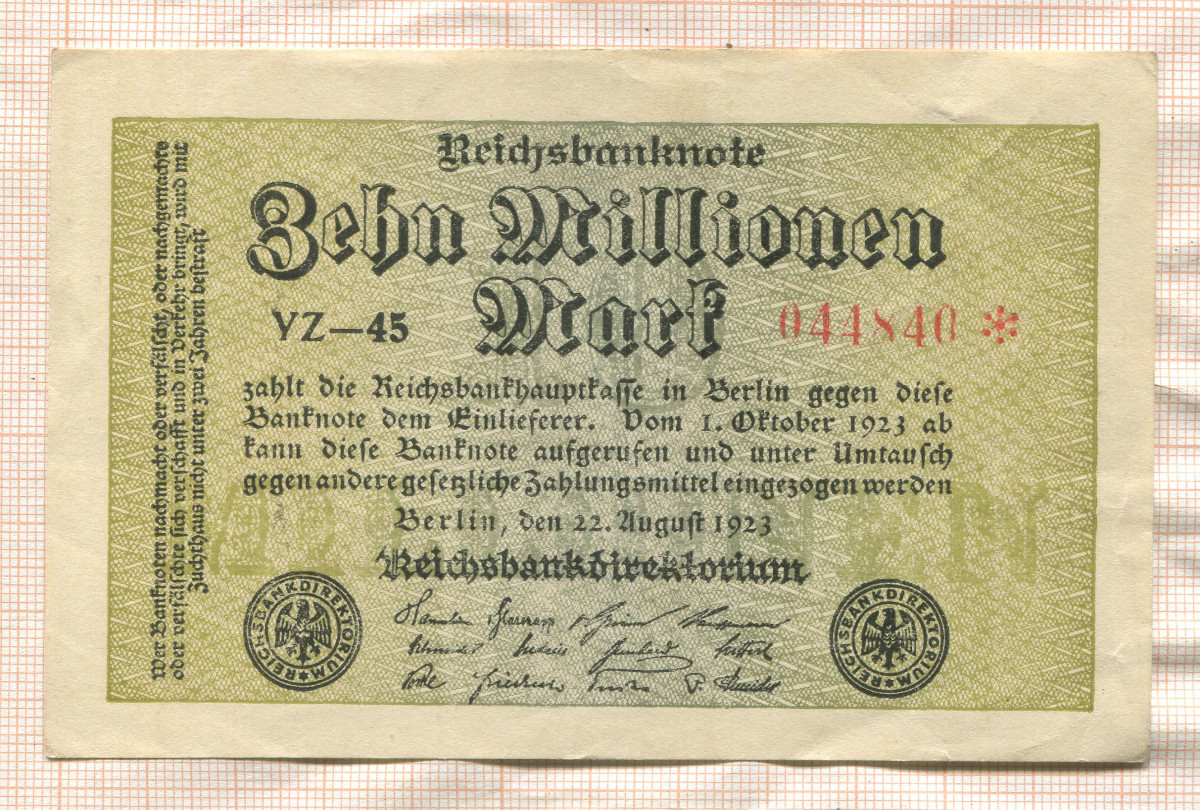 Reichsbanknote
Zehn Millionen
Mark
YZ—45
044840 *
zahlt die Reichsbankhauptkasse in Berlin gegen diese
Banknote dem Einlieferer. Vom 1. Oktober 1923 ab
kann diese Banknote aufgerufen und unter Umtausch
gegen andere gesetzliche Zahlungsmittel eingezogen werden
Berlin, den 22. August 1923
Reichsbankdirektorium
REICHSBANKDIREKTORIUM
REICHSBANKDIREKTORIUM
Wer Banknoten nachmacht oder verfälscht, oder nachgemachte
oder verfälschte sich verschafft und in Verkehr bringt, wird mit
Zuchthaus nicht unter zwei Jahren bestraft